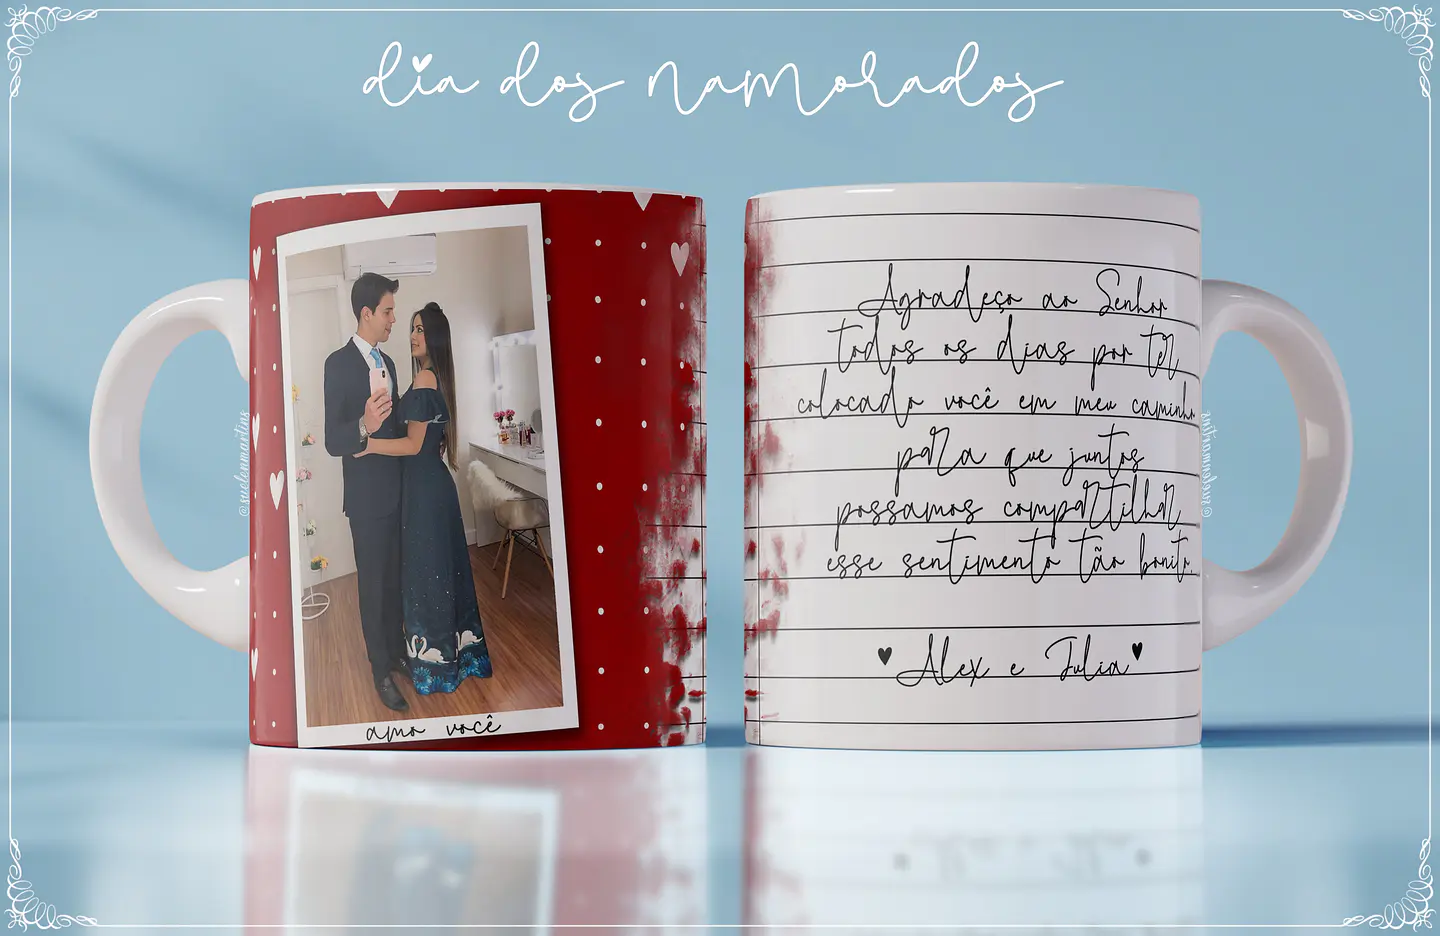 dia dos namorados
amo você
@suelenmartins
Agradeço ao Senhor
todos os dias por ter
colocado você em meu caminho
para que juntos
possamos compartilhar
esse sentimento tão bonito.
Alex e Julia
@suelenmartins